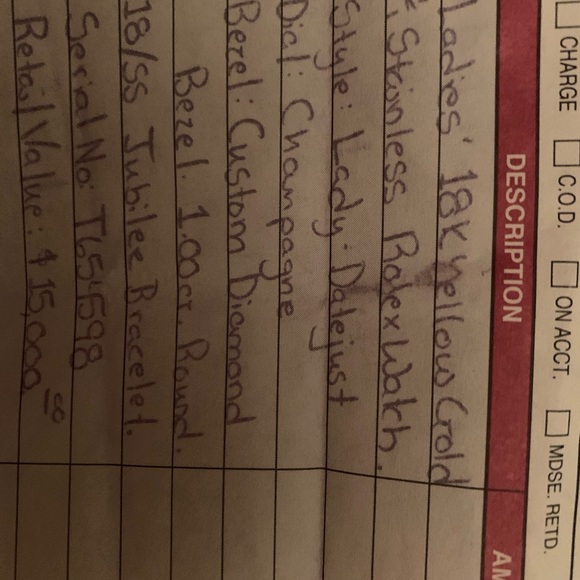 CHARGE C.O.D. ON ACCT. MDSE. RETD.
DESCRIPTION
Ladies' 18K Yellow Gold
& Stainless Rolex Watch.
Style: Lady-Datejust
Dial: Champagne
Bezel: Custom Diamond
Bezel: 1.00ct. Round.
18/SS Jubilee Bracelet.
Serial No: T654598
Retail Value: $15,000 00